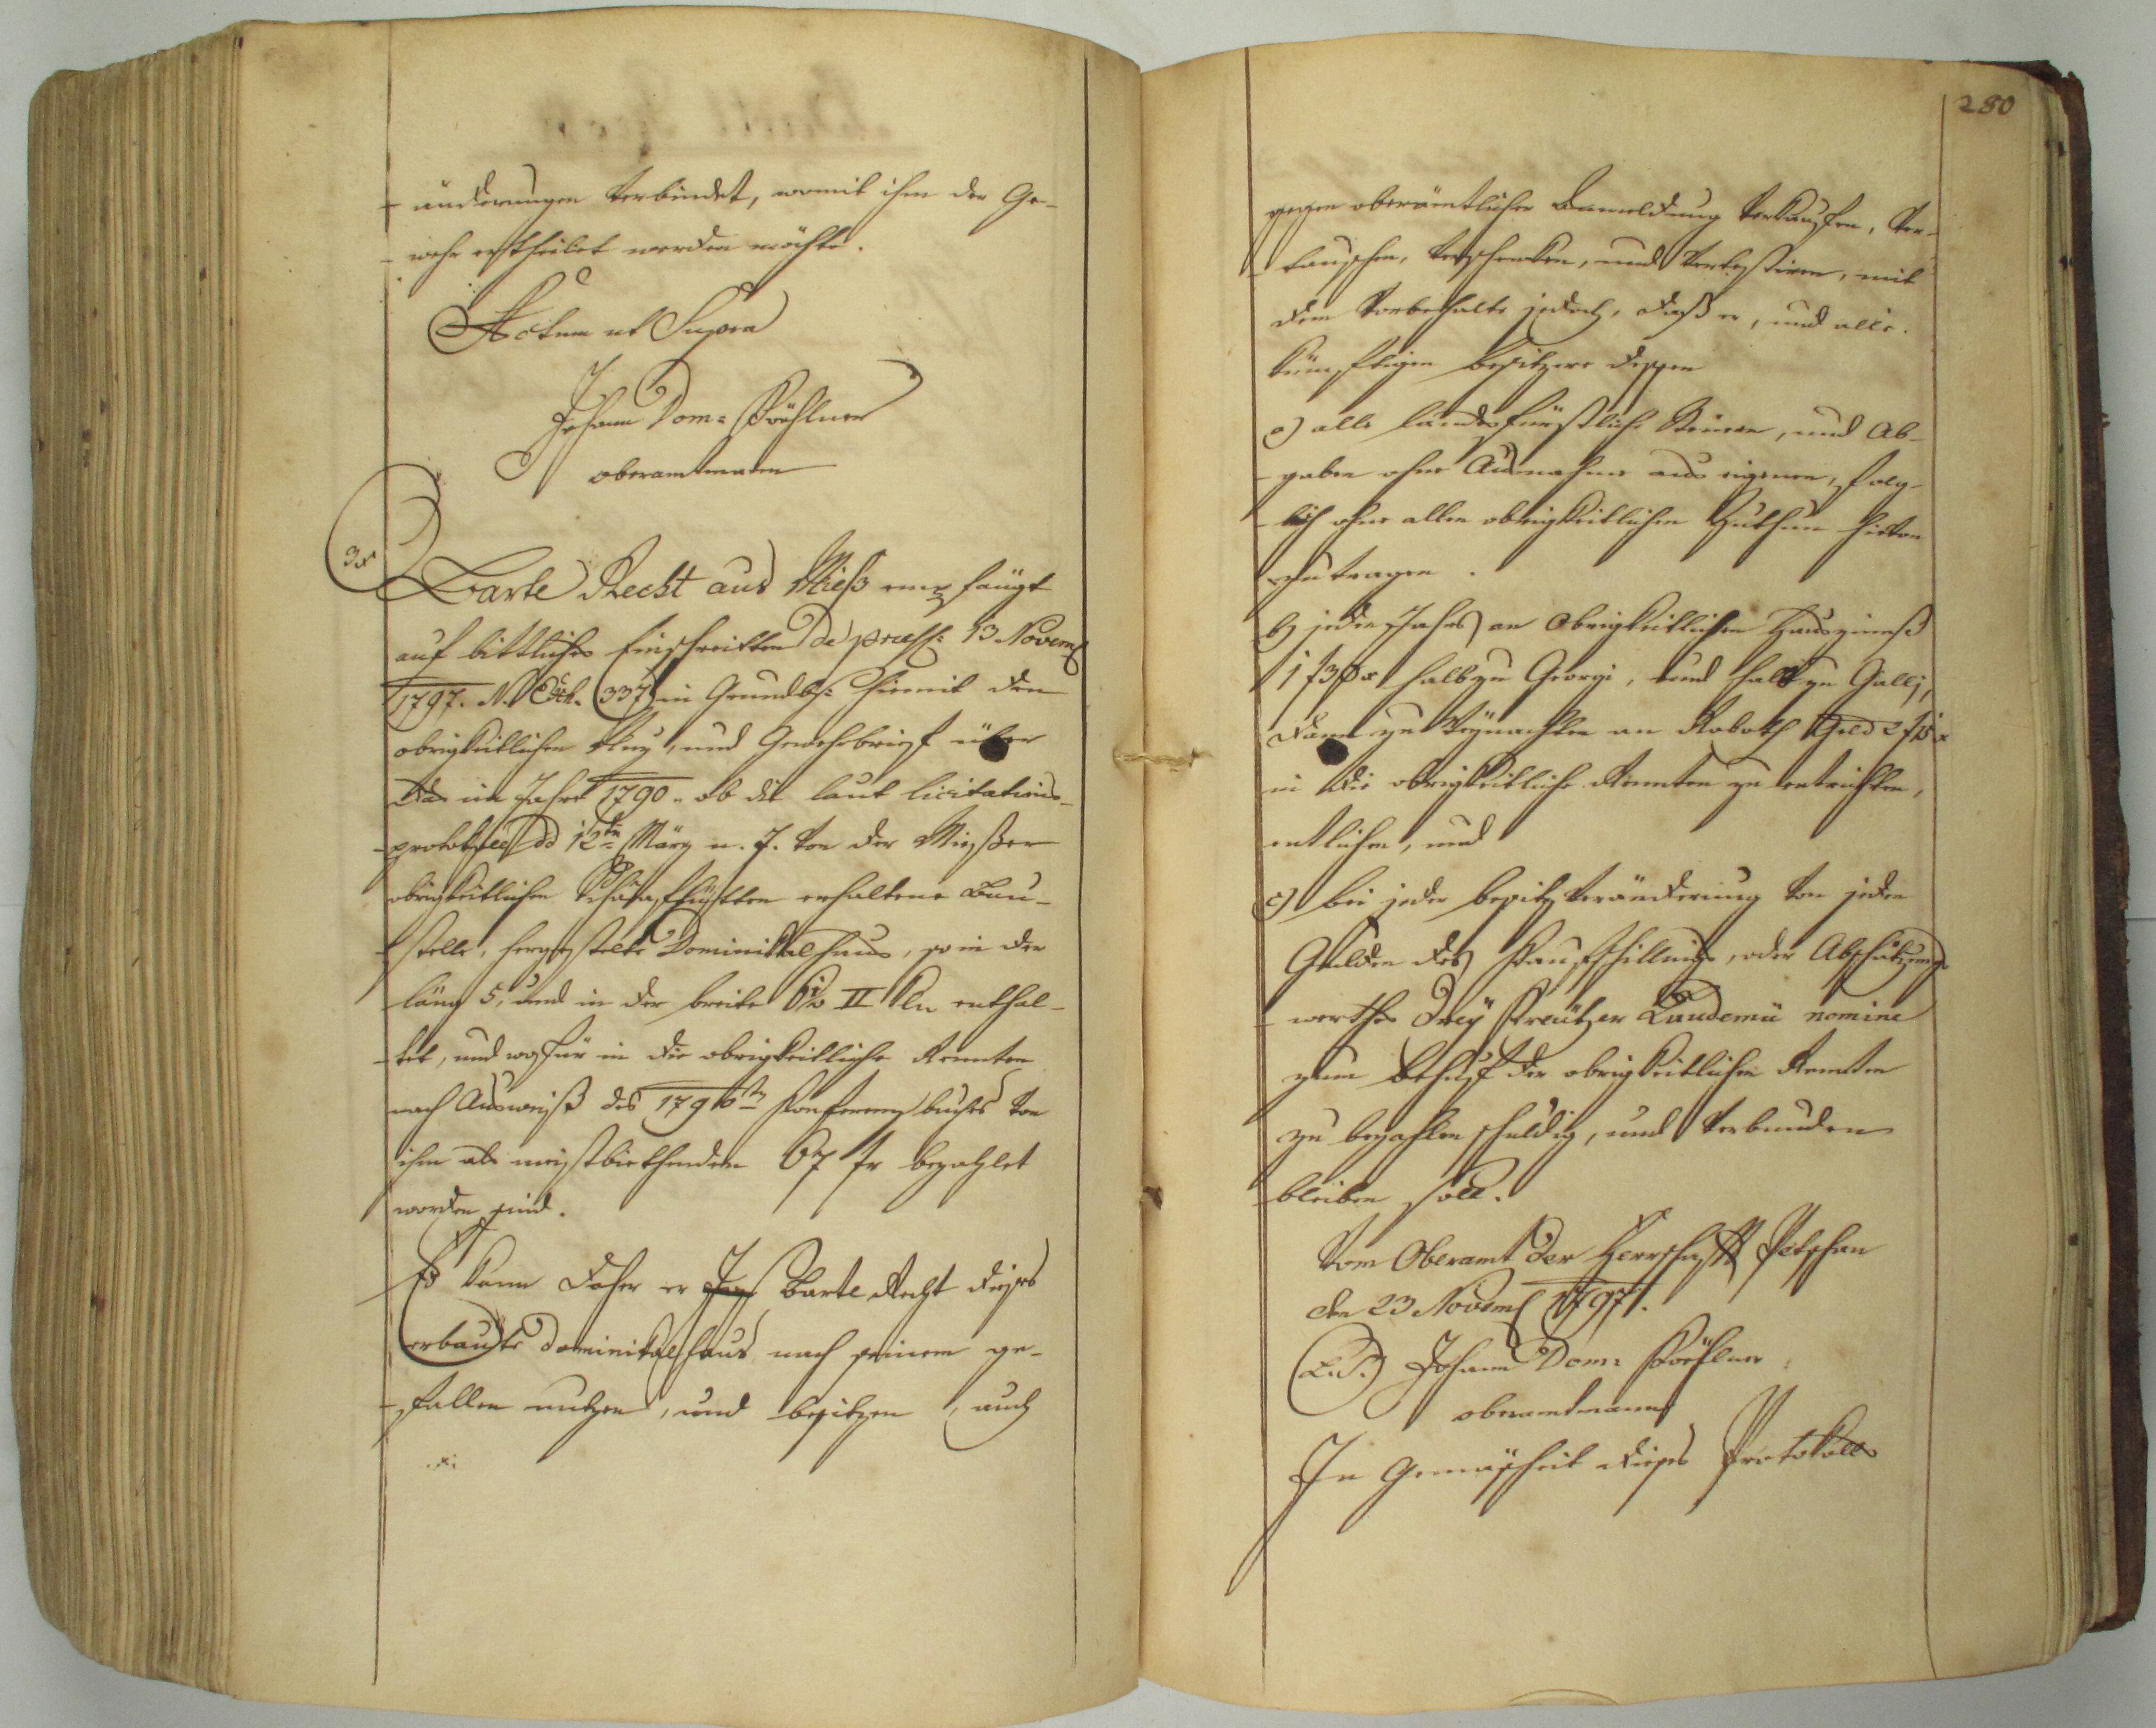 änderungen verbindet, womit ihm der Ge-
wehr ertheilet werden möchte.
Actum ut Supra
Johann Dom: Pöhlner
oberamtmann
3x
Barte Recht aus Mieß empfängt
auf bittliches Einschreiten de præs: 13 Novemb
1797. N. Exh. 337 in Grundb: hiemit den
obrigkeitlichen und Gewehrbrief über
das im Jahre 1790. ob der laut licitations-
protokoll dd 12ten März n. J. von der Mießer
obrigkeitlichen Schaafhütten erhaltene Bau-
stelle, hergestelte Dominikalhaus, so in der
läng 5, und in der breite Kln enthal-
tet, und wofür in die obrigkeitliche Renten
nach Ausweiß des 1796ten buches von
ihm als meistbiethenden 67 fr bezahlet
worden sind.
Es kann daher er Barte Recht dieses
erbaute Dominikalhaus nach seinem ge-
fallen nutzen, und besitzen, auch
280
gegen oberämtlicher Anmeldung verkaufen, ver-
tauschen, verschenken, und vertestiren, mit
dem Vorbehalte jedoch, daß er, und alle
künftigen besitzere dessen
a) alle landesfürstliche Steuern, und Ab-
gaben ohne Ausnahme aus eigenen, folg-
lich ohne allen obrigkeitlichen Zuthun hievon
zu tragen.
b) jeden Jahres an Obrigkeitlichen Hauszinnß
1 f 30 x halb zu Georgi, und halb zu Galli,
dann zu Weynachten an Roboth Geld 2 f 15 x
in die obrigkeitliche Rennten zu entrichten,
entlichen, und
c) bei jeder besitz Veränderung von jeden
Gulden des Kaufschillings, oder Abschätzungs
werthes Drey Kreutzer Laudemii nomine
zum behuf der obrigkeitlichen Renten
zu bezahlen schuldig, und verbunden
bleiben soll.
Vom Oberamt der Herrschaft Petschau
den 23 Novemb 1797.
(L.S.) Johann Dom: Pöhlner
oberamtmann
In Gemäsheit dieses Protokolls